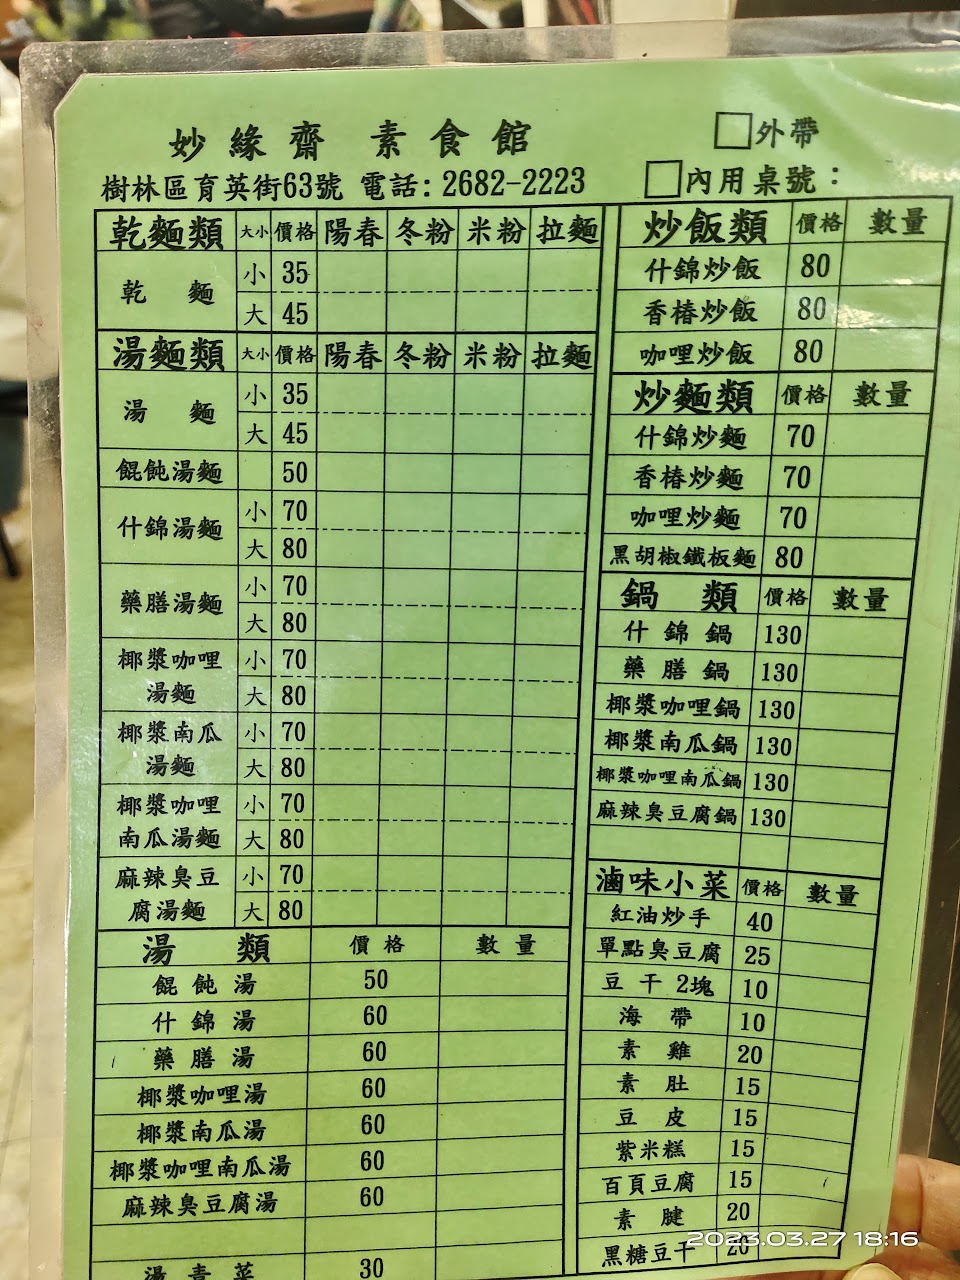 妙緣齋 素食館
樹林區育英街63號 電話:2682-2223
□外帶
□內用桌號：
乾麵類 大小 價格 陽春 冬粉 米粉 拉麵
乾麵 小 35
大 45
湯麵類 大小 價格 陽春 冬粉 米粉 拉麵
湯麵 小 35
大 45
餛飩湯麵 50
什錦湯麵 小 70
大 80
藥膳湯麵 小 70
大 80
椰漿咖哩 小 70
湯麵 大 80
椰漿南瓜 小 70
湯麵 大 80
椰漿咖哩 小 70
南瓜湯麵 大 80
麻辣臭豆 小 70
腐湯麵 大 80
湯類 價格 數量
餛飩湯 50
什錦湯 60
藥膳湯 60
椰漿咖哩湯 60
椰漿南瓜湯 60
椰漿咖哩南瓜湯 60
麻辣臭豆腐湯 60
湯青菜 30
炒飯類 價格 數量
什錦炒飯 80
香椿炒飯 80
咖哩炒飯 80
炒麵類 價格 數量
什錦炒麵 70
香椿炒麵 70
咖哩炒麵 70
黑胡椒鐵板麵 80
鍋類 價格 數量
什錦鍋 130
藥膳鍋 130
椰漿咖哩鍋 130
椰漿南瓜鍋 130
椰漿咖哩南瓜鍋 130
麻辣臭豆腐鍋 130
滷味小菜 價格 數量
紅油炒手 40
單點臭豆腐 25
豆干2塊 10
海帶 10
素雞 20
素肚 15
豆皮 15
紫米糕 15
百頁豆腐 15
素腱 20
黑糖豆干 20
2023.03.27 18:16